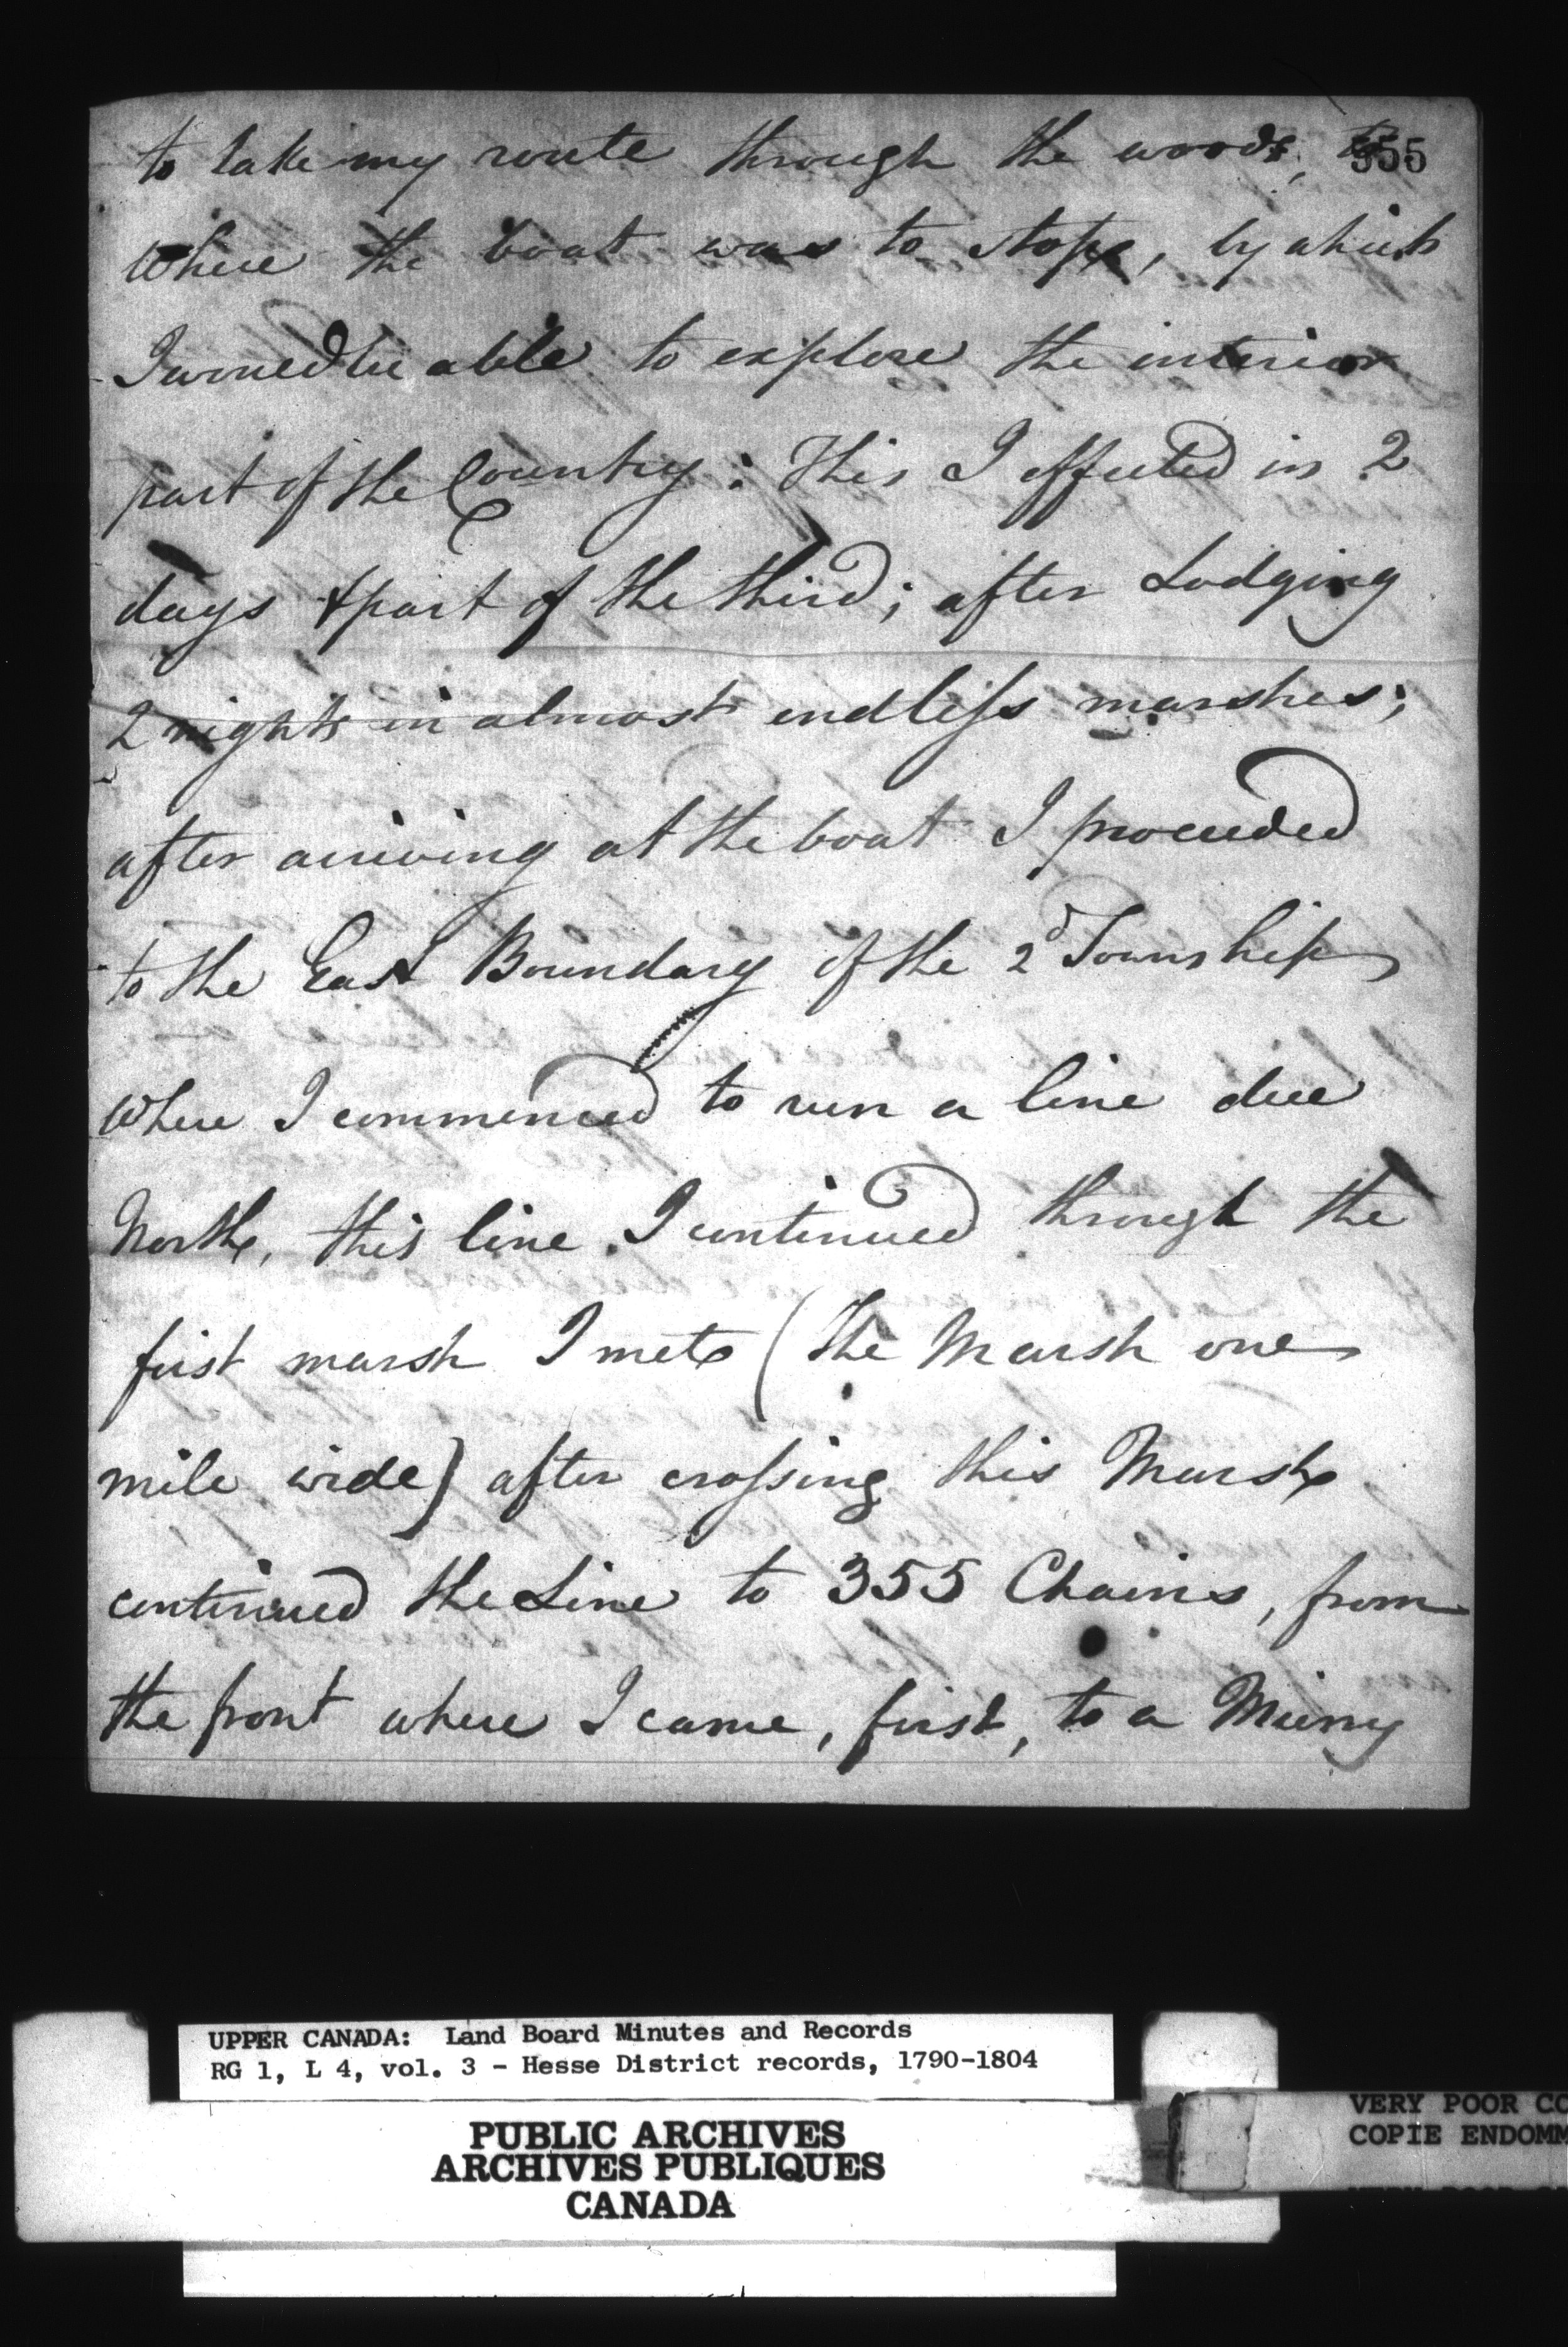 to take my route through the woods, to
355
where the boat was to stope, by which
I woued be able to explore the interior
part of the Country: This I effected in 2
days & part of the third; after Lodging
2 nights in almost endless marshes;
after arriving at the boat I proceeded
to the East Boundary of the 2d Township
where I commenced to run a line due
North, this line I continued through the
first marsh I met (The Marsh one
mile wide) after crossing this Marsh
continued the Line to 355 Chains, from
the front where I came, first, to a Mirny
UPPER CANADA: Land Board Minutes and Records
RG 1, L 4, vol. 3 - Hesse District records, 1790-1804
PUBLIC ARCHIVES
ARCHIVES PUBLIQUES
CANADA
VERY POOR CO
COPIE ENDOMM